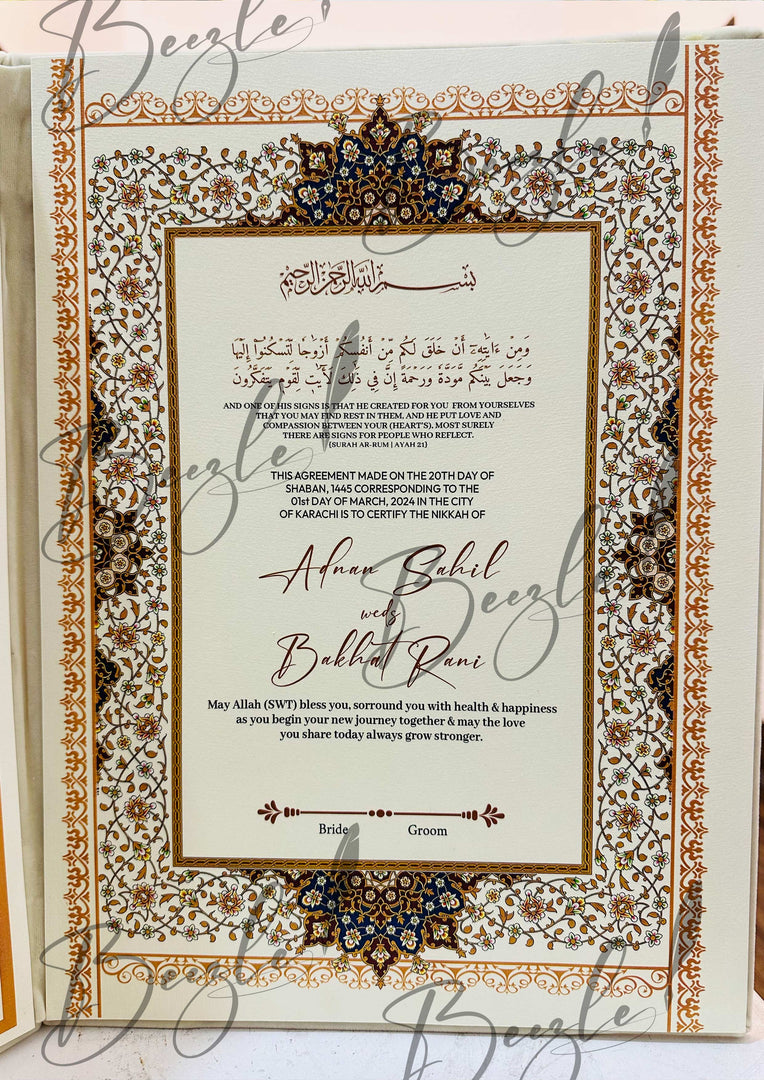 Beezle'
Beezle'
بسم الله الرحمن الرحيم
وَمِنْ ءَايَٰتِهِۦٓ أَنْ خَلَقَ لَكُم مِّنْ أَنفُسِكُمْ أَزْوَٰجًا لِّتَسْكُنُوٓا۟ إِلَيْهَا
وَجَعَلَ بَيْنَكُم مَّوَدَّةً وَرَحْمَةً إِنَّ فِى ذَٰلِكَ لَءَايَٰتٍ لِّقَوْمٍ يَتَفَكَّرُونَ
AND ONE OF HIS SIGNS IS THAT HE CREATED FOR YOU FROM YOURSELVES
THAT YOU MAY FIND REST IN THEM, AND HE PUT LOVE AND
COMPASSION BETWEEN YOUR (HEART'S). MOST SURELY
THERE ARE SIGNS FOR PEOPLE WHO REFLECT.
(SURAH AR-RUM | AYAH 21)
Beezle'
THIS AGREEMENT MADE ON THE 20TH DAY OF
SHABAN, 1445 CORRESPONDING TO THE
01st DAY OF MARCH, 2024 IN THE CITY
OF KARACHI IS TO CERTIFY THE NIKKAH OF
Adnan Sahil
Beezle'
weds
Bakhat Rani
May Allah (SWT) bless you, sorround you with health & happiness
as you begin your new journey together & may the love
you share today always grow stronger.
Bride Groom
Beezle'
Beezle'